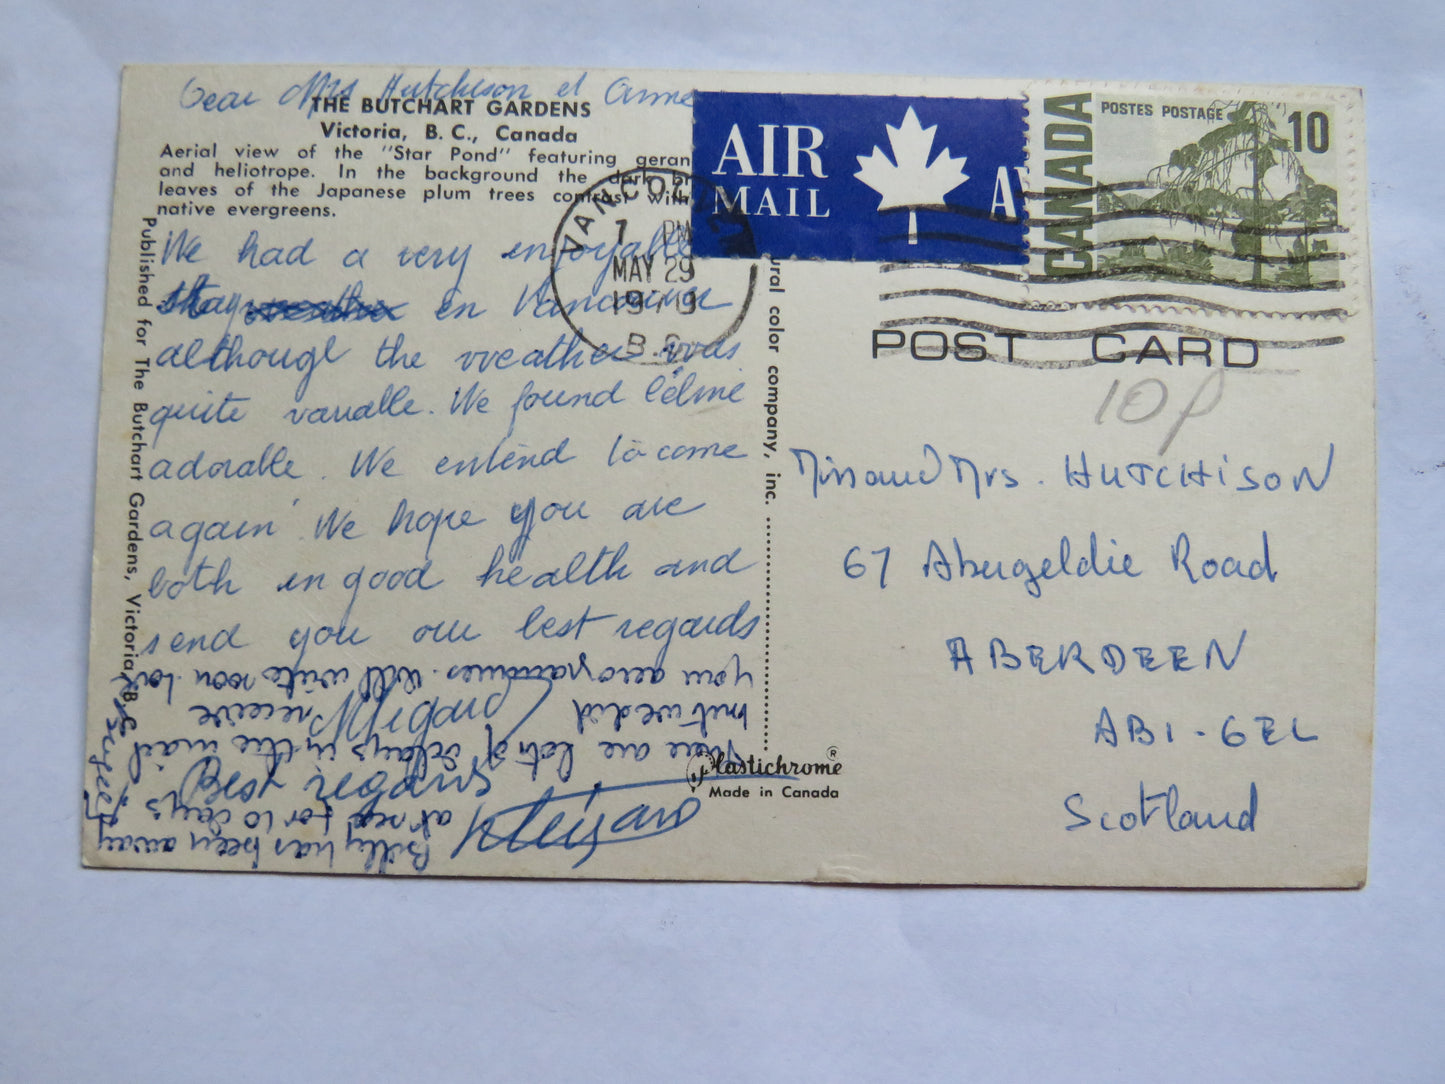 Dear Mrs Hutchison et Anne
THE BUTCHART GARDENS
Victoria, B. C., Canada
Aerial view of the "Star Pond" featuring geran
and heliotrope. In the background the dark br
leaves of the Japanese plum trees contrast with
native evergreens.
We had a very enjoyable
stay in Vancouver
although the weather was
quite variable. We found
adorable. We entend to come
again. We hope you are
both in good health and
send you our best regards
Best regards
There are lots of delays in the mail
but we did receive
your aerogrammes. Will write soon. love
Billy has been away
at sea for 10 days
Published for The Butchart Gardens, Victoria, B.C.
ural color company, inc.
Plastichrome ®
Made in Canada
AIR
MAIL
AV
CANADA
POSTES POSTAGE
10
VANCOUVER
PM
MAY 29
B.C.
POST CARD
10p
Miss and Mrs. HUTCHISON
67 Abergeldie Road
ABERDEEN
AB1-6EL
Scotland